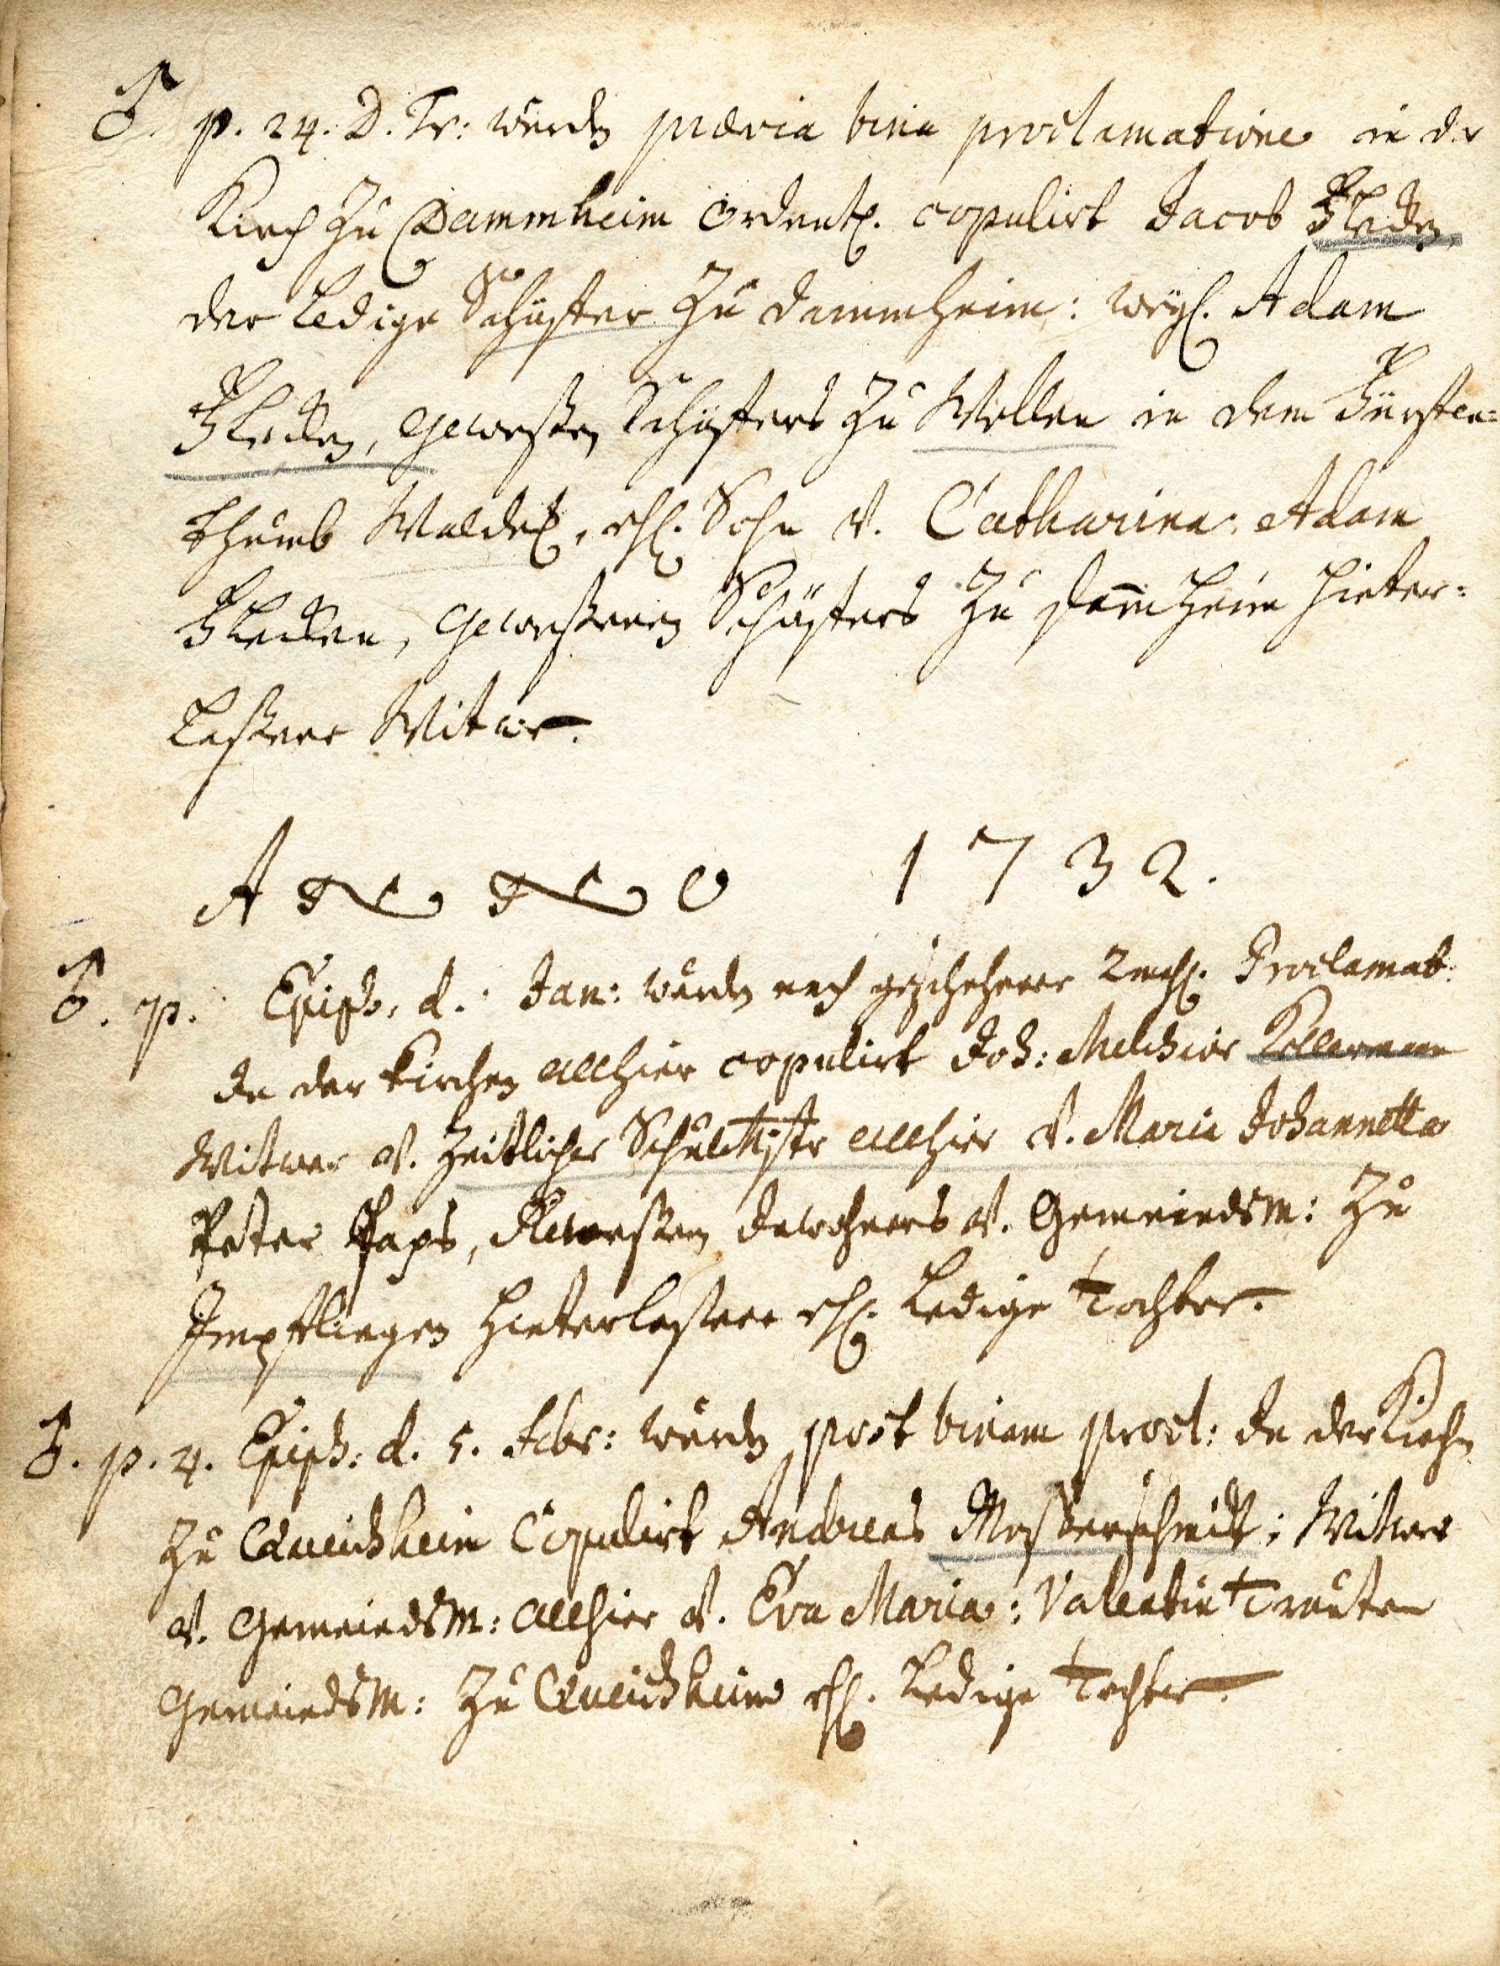 ♂. p. 24. D. Tr: wurden prævia bina proclamatione in der
Kirch zu Dammheim Ordentl. copulirt Jacob
der Ledige Schäffer zu Dammheim: weyl. Adam
geweßen Schäffers zu Wellen in dem Fürsten=
thumb Waldek, ehl. Sohn u. Catharina: Adam
gewesenen Schäffers zu Dam̄heim hinter=
Laßene Witwe.
ANNO 1732.
♂. p. Epiph, d. : Jan: wurden nach geschehener 2mahl. Proclamat:
In der Kirchen allhier copulirt Joh: Melchior Kellermann
Witwer u. Zeitlicher Schultheiß allhier u. Maria Johannetta
Peter Paps, Geweßen Inwohners u. Gemeindsm: zu
Impflingen hinterlaßene ehl. Ledige Tochter.
♂. p. 4. Epiph: d. 5. Febr: wurden post binam procl: In der Kirchen
zu Queichheim Copulirt Andreas Meßerschmidt; Witwer
u. Gemeindsm: allhier u. Eva Maria: Valentin Trauten
Gemeindsm: zu Queichheim ehl. Ledige Tochter.